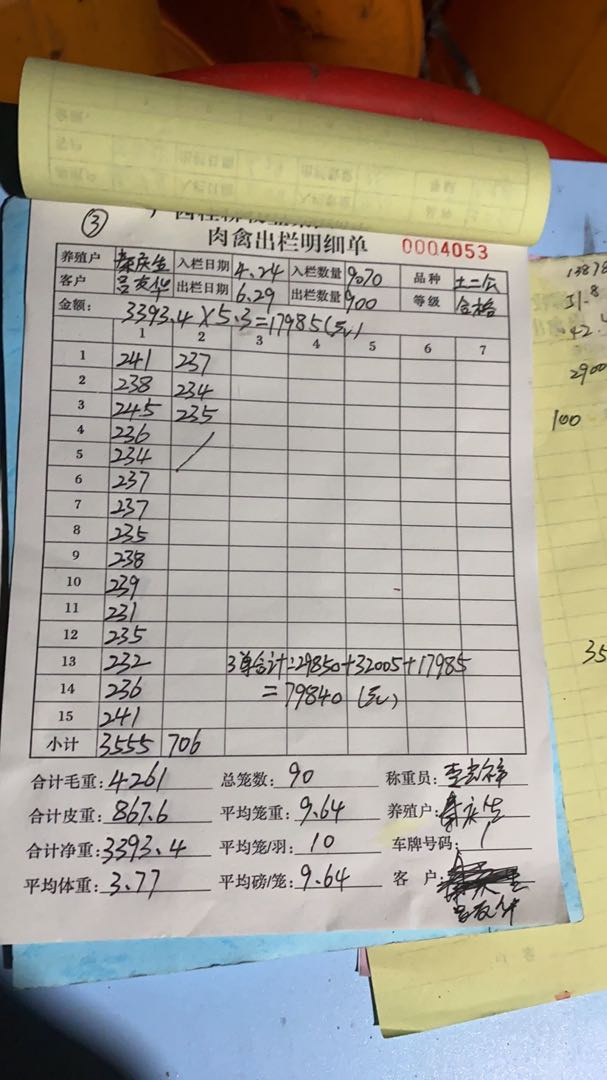 ③
肉禽出栏明细单 0004053
养殖户 秦庆生 入栏日期 4.24 入栏数量 9070 品种 土二公
客户 吕友华 出栏日期 6.29 出栏数量 900 等级 合格
金额: 3393.4×5.3=17985(元)
1 2 3 4 5 6 7
1 241 237
2 238 234
3 245 235
4 236
5 234
6 237
7 237
8 235
9 238
10 239
11 231
12 235
13 232 3单合计=29850+32005+17985
14 236 =79840(元)
15 241
小计 3555 706
合计毛重: 4261 总笼数: 90 称重员:
合计皮重: 867.6 平均笼重: 9.64 养殖户: 秦庆生
合计净重: 3393.4 平均笼/羽: 10 车牌号码: /
平均体重: 3.77 平均磅/笼: 9.64 客户:
吕友华
13878
31.8
42.4
2900
100
35